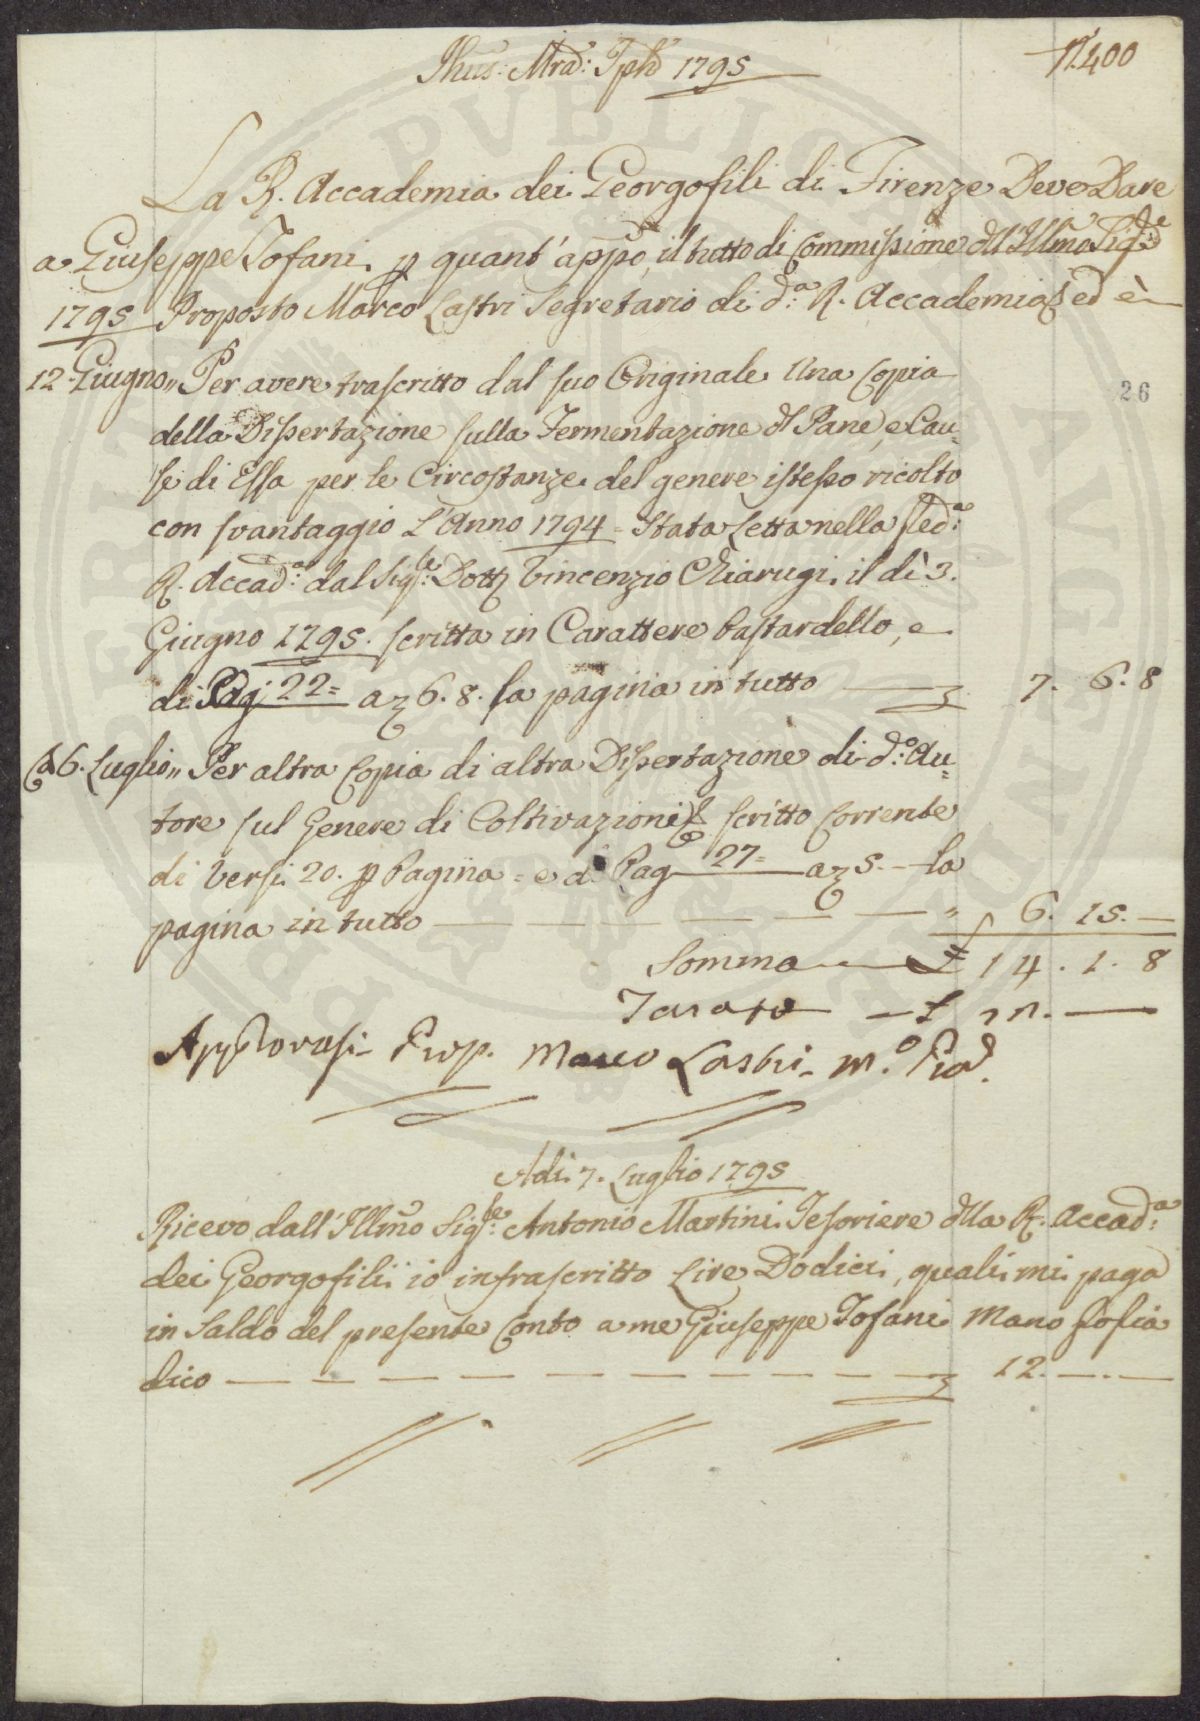 Jhus: Mra: Jph 1795
N.400
La R. Accademia dei Georgofili di Firenze Deve Dare
a Giuseppe Tofani p quant' appo, il tutto di Commissione dll' Illmo Sigre
1795 Proposto Marco Lastri Segretario di da: R. Accademia, ed è
12 Giugno,, Per avere trascritto dal suo Originale Una Copia
26
della Dissertazione sulla Fermentazione dl Pane, e Cau=
se di Essa per le Circostanze del genere istesso ricolto
con svantaggio L'Anno 1794 = Stata Letta nella sed:a
R. Accad:a dal Sigre: Dott Vincenzio Chiarugi il dì 3.
Giugno 1795. scritta in Carattere bastardello, e
di Pag: 22= a 6. 8. la pagina in tutto 7. 6. 8
6. Luglio,, Per altra Copia di altra Dissertazione di do: Au=
tore sul Genere di Coltivazioni scritto corrente
di Versi 20. p Pagina = e di Pag 27= a 5.- la
pagina in tutto — — — — — " 6. 15. —
Somma £ 14. 1. 8
Tarato — £ 12. —
Approvasi Prop. Marco Lastri mo.
Adì 7. Luglio 1795
Ricevo dall' Illmo Sigre: Antonio Martini Tesoriere dlla R. Accada:
dei Georgofili io infrascritto Lire Dodici, quali mi paga
in Saldo del presente Conto a me Giuseppe Tofani Mano
dico — — — — — — — — — — — 12. —. —